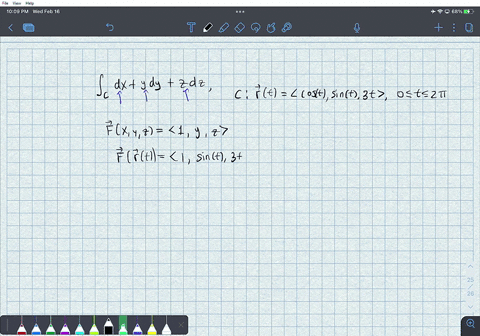 10:09 PM Wed Feb 16
68%
∫_C dx + y dy + z dz, C: r⃗(t) = <cos(t), sin(t), 3t>, 0≤t≤2π
F⃗(x,y,z) = <1, y, z>
F⃗(r⃗(t)) = <1, sin(t), 3t